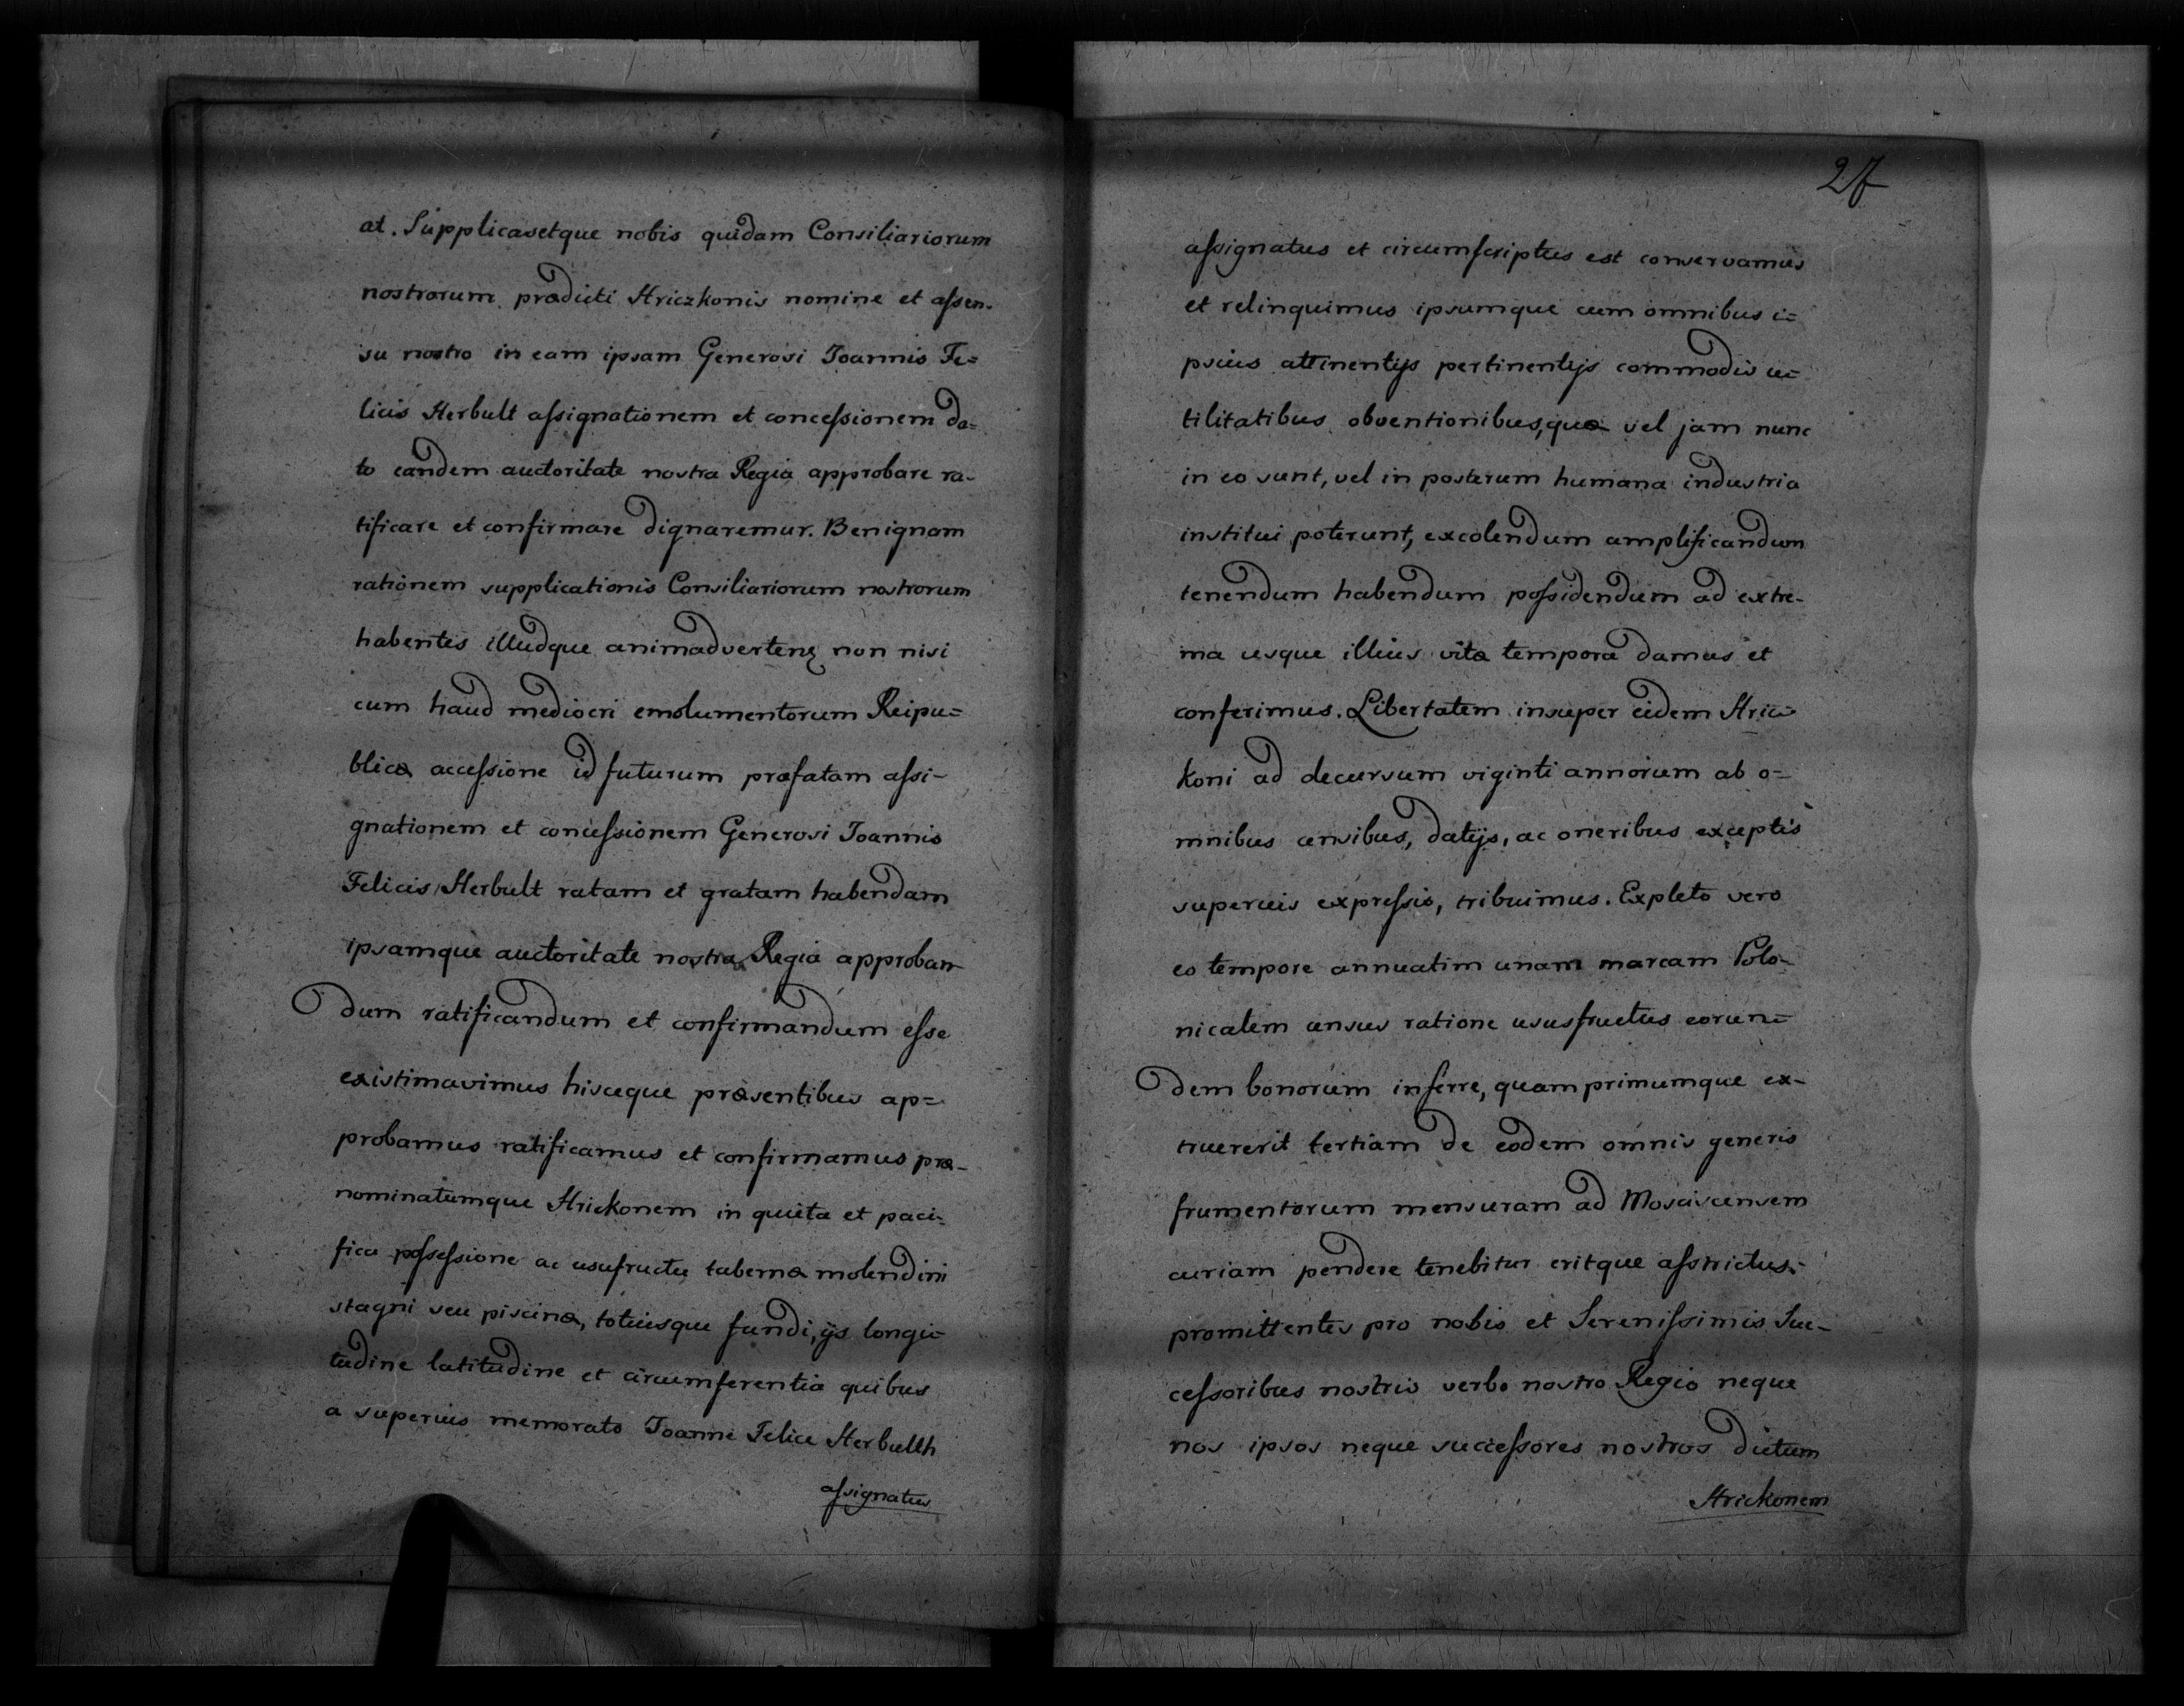 at. Supplicasetque nobis quidam Consiliariorum
nostrorum prædicti Hriczkonis nomine et assen-
su nostro in eam ipsam Generosi Joannis Fe=
licis Herbult assignationem et concessionem da=
to eandem auctoritate nostra Regia approbare ra-
tificare et confirmare dignaremur. Benignam
rationem supplicationis Consiliariorum nostrorum
habentes illudque animadvertenę non nisi
cum haud mediocri emolumentorum Reipu=
blicæ accessione id futurum præfatam assi-
gnationem et concessionem Generosi Joannis
Felicis Herbult ratam et gratam habendam
ipsamque auctoritate nostra Regia approban-
dum ratificandum et confirmandum esse
existimavimus hisceque præsentibus ap=
probamus ratificamus et confirmamus præ-
nominatumque Hrickonem in quieta et paci-
fica possessione ac usufructu tabernæ molendini
stagni seu piscinæ, totiusque fundi, ijs longi=
tudine latitudine et circumferentia quibus
a superius memorato Joanne Felice Herbulth
assignatus
27
assignatus et circumscriptus est conservamus
et relinquimus ipsumque cum omnibus i=
psius attinentijs pertinentijs commodis u=
tilitatibus obventionibus, quæ vel jam nunc
in eo sunt, vel in posterum humana industria
institui poterunt, excolendum amplificandum
tenendum habendum possidendum ad extre-
ma usque illius vitæ tempora damus et
conferimus. Libertatem insuper eidem Hric=
koni ad decursum viginti annorum ab o=
mnibus censibus, datijs, ac oneribus exceptis
superius expressis, tribuimus. Expleto vero
eo tempore annuatim unam marcam Polo-
nicalem census ratione ususfructus eorun=
dem bonorum inferre, quamprimumque ex-
truxerit tertiam de eodem omnis generis
frumentorum mensuram ad Mosciscensem
curiam pendere tenebitur eritque asstrictus.
promittentes pro nobis et Serenissimis Suc-
cessoribus nostris verbo nostro Regio neque
nos ipsos neque successores nostros dictum
Hrickonem